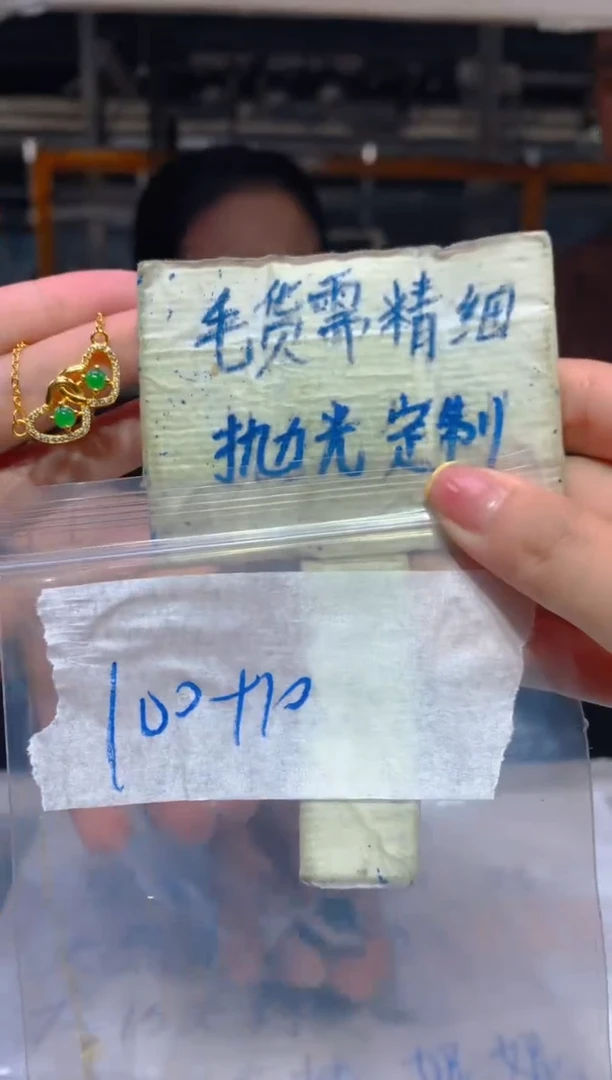 毛货需精细
抛光定制
100+70